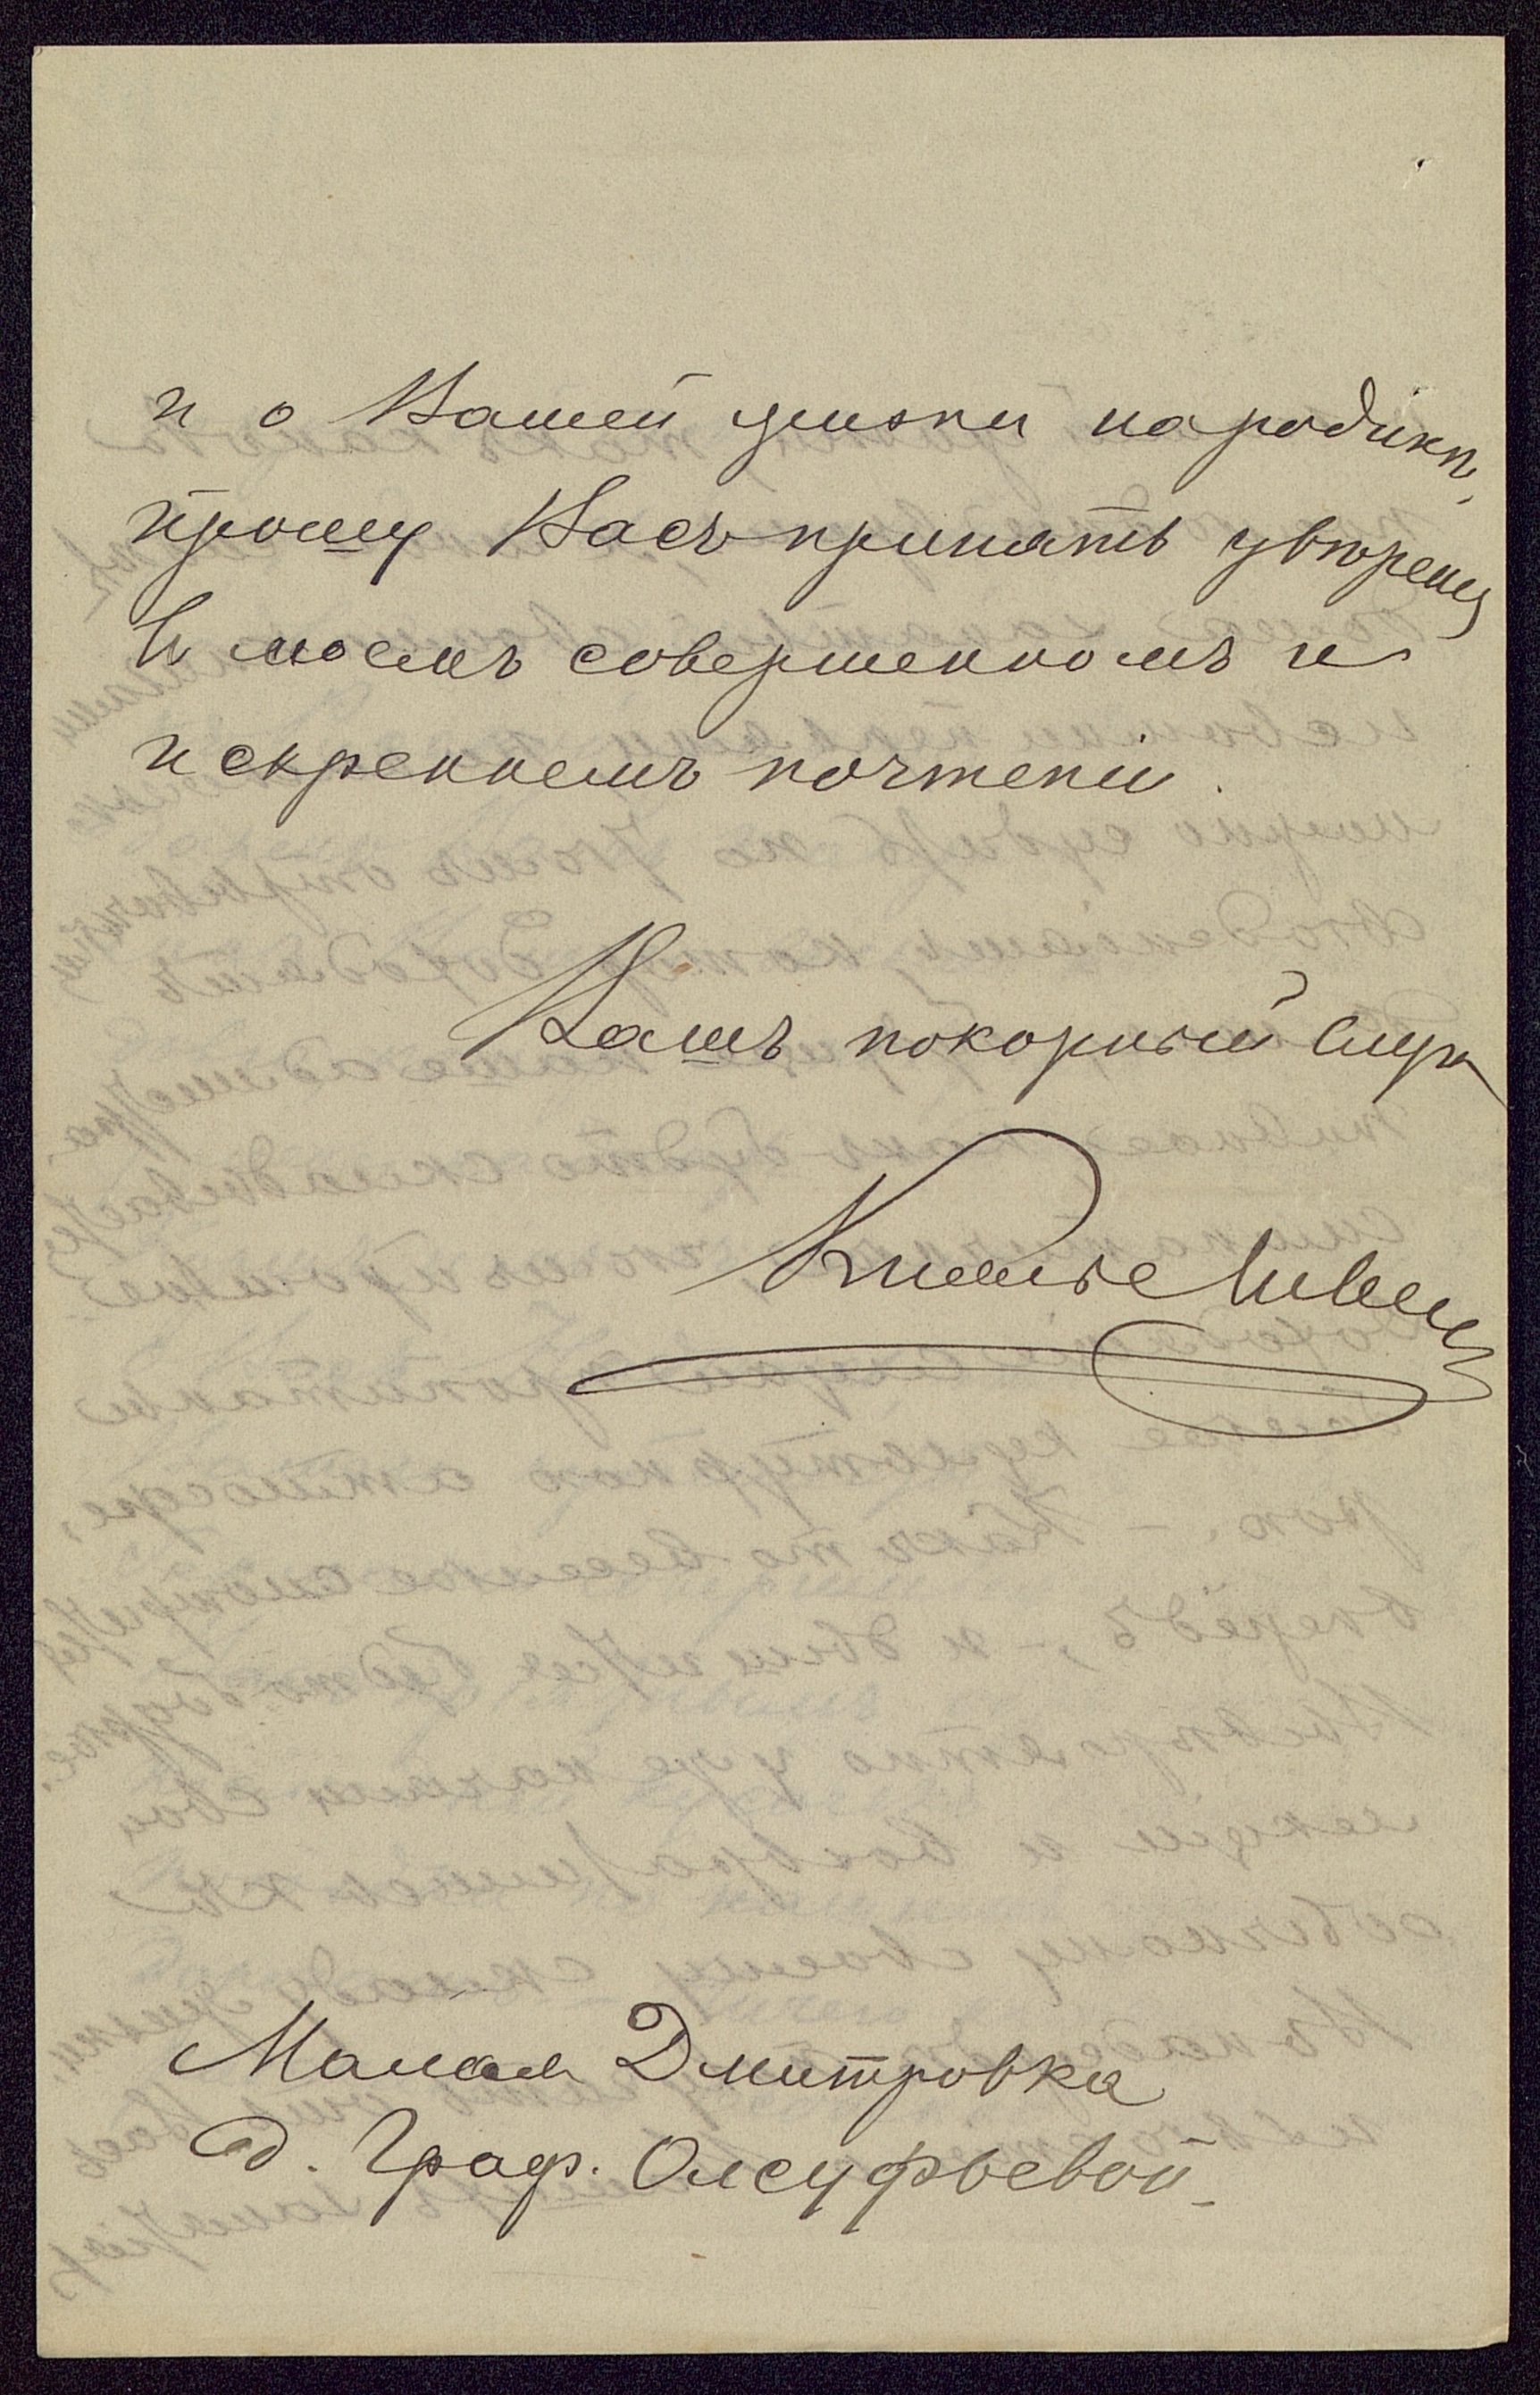 и о Вашей жизни на родинѣ,
прошу Васъ принять увѣренія
въ моемъ совершенномъ и
искреннемъ почтеніи.
Вашъ покорный слуга
Малая Дмитровка
д. Граф. Олсуфьевой